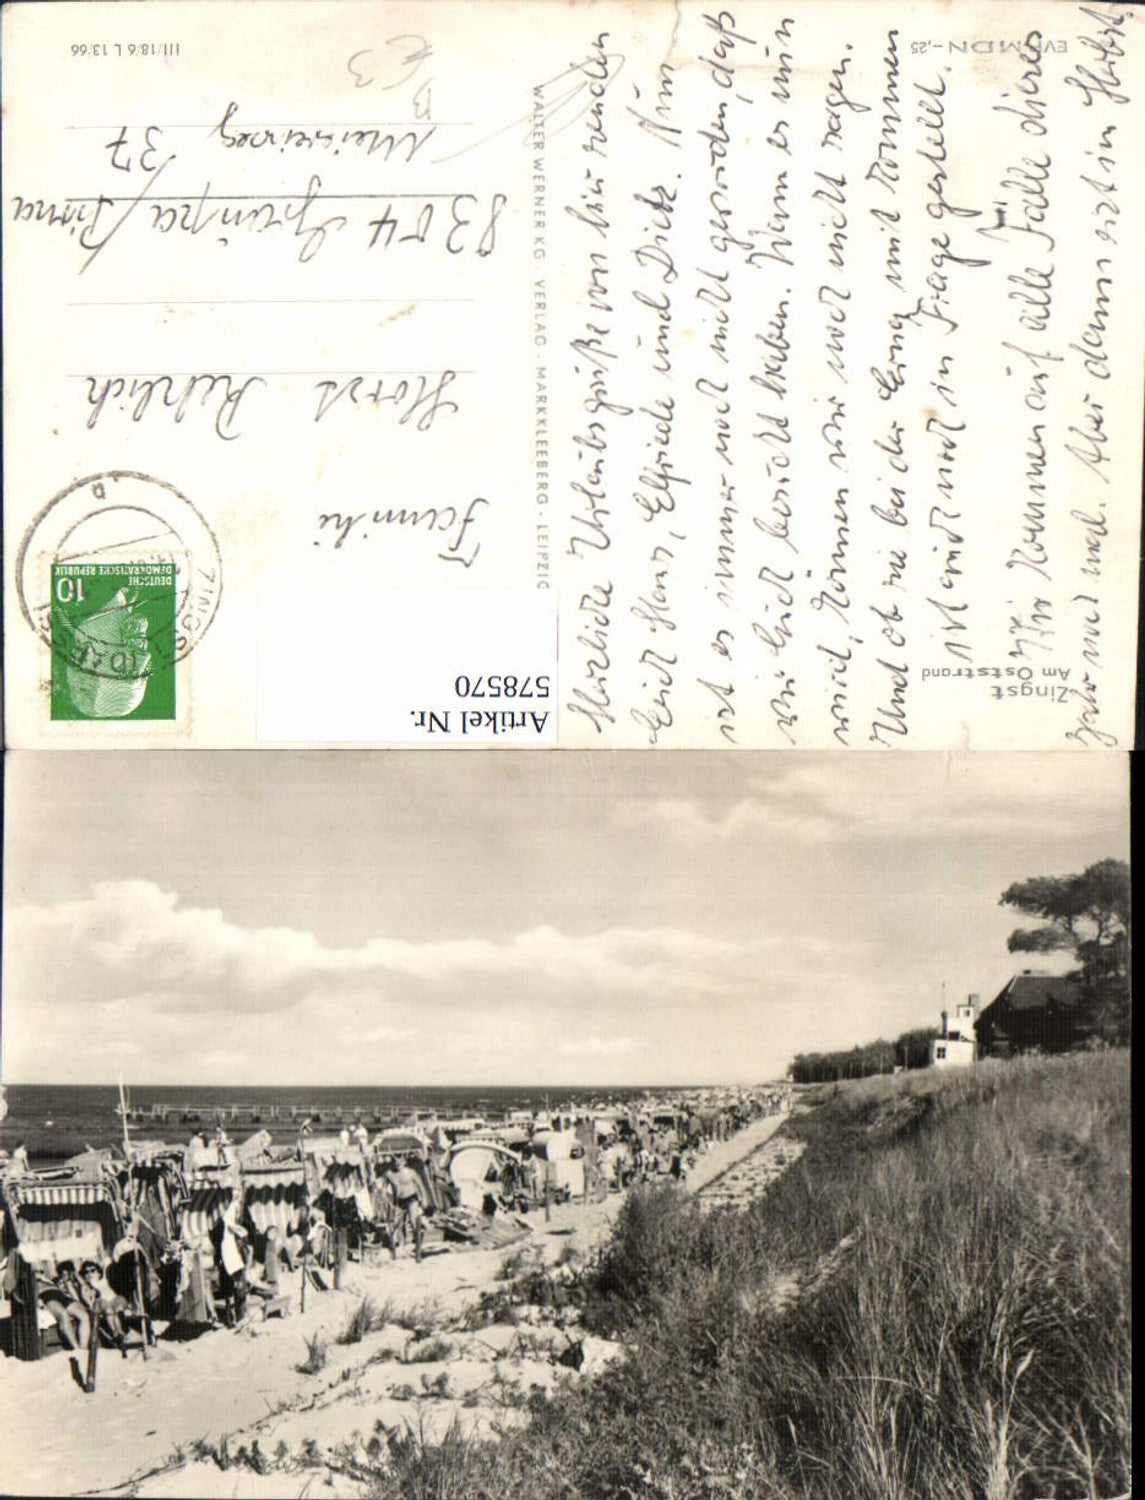 Zingst
Am Oststrand
Herzliche Urlaubsgrüße von hier senden
Euch Hans, Elfriede und Dieter. Nun
ist es immer noch nicht geworden, daß
wir Euch besucht haben. Wann es nun
wird, können wir noch nicht sagen.
Und ob sie bei der Enge mit kommen
ist auch noch in Frage gestellt.
Wir kommen auf alle Fälle dieses
Jahr noch mal. Aber dann erst im Herbst.
EVP MDN -,25
WALTER WERNER KG · VERLAG · MARKKLEEBERG · LEIPZIG
Artikel Nr.
578570
DEUTSCHE
DEMOKRATISCHE REPUBLIK
10
ZINGST (DARSS)
a
Familie
Horst
8304 Graupa/Pirna
37
III/18/6 L 13/66